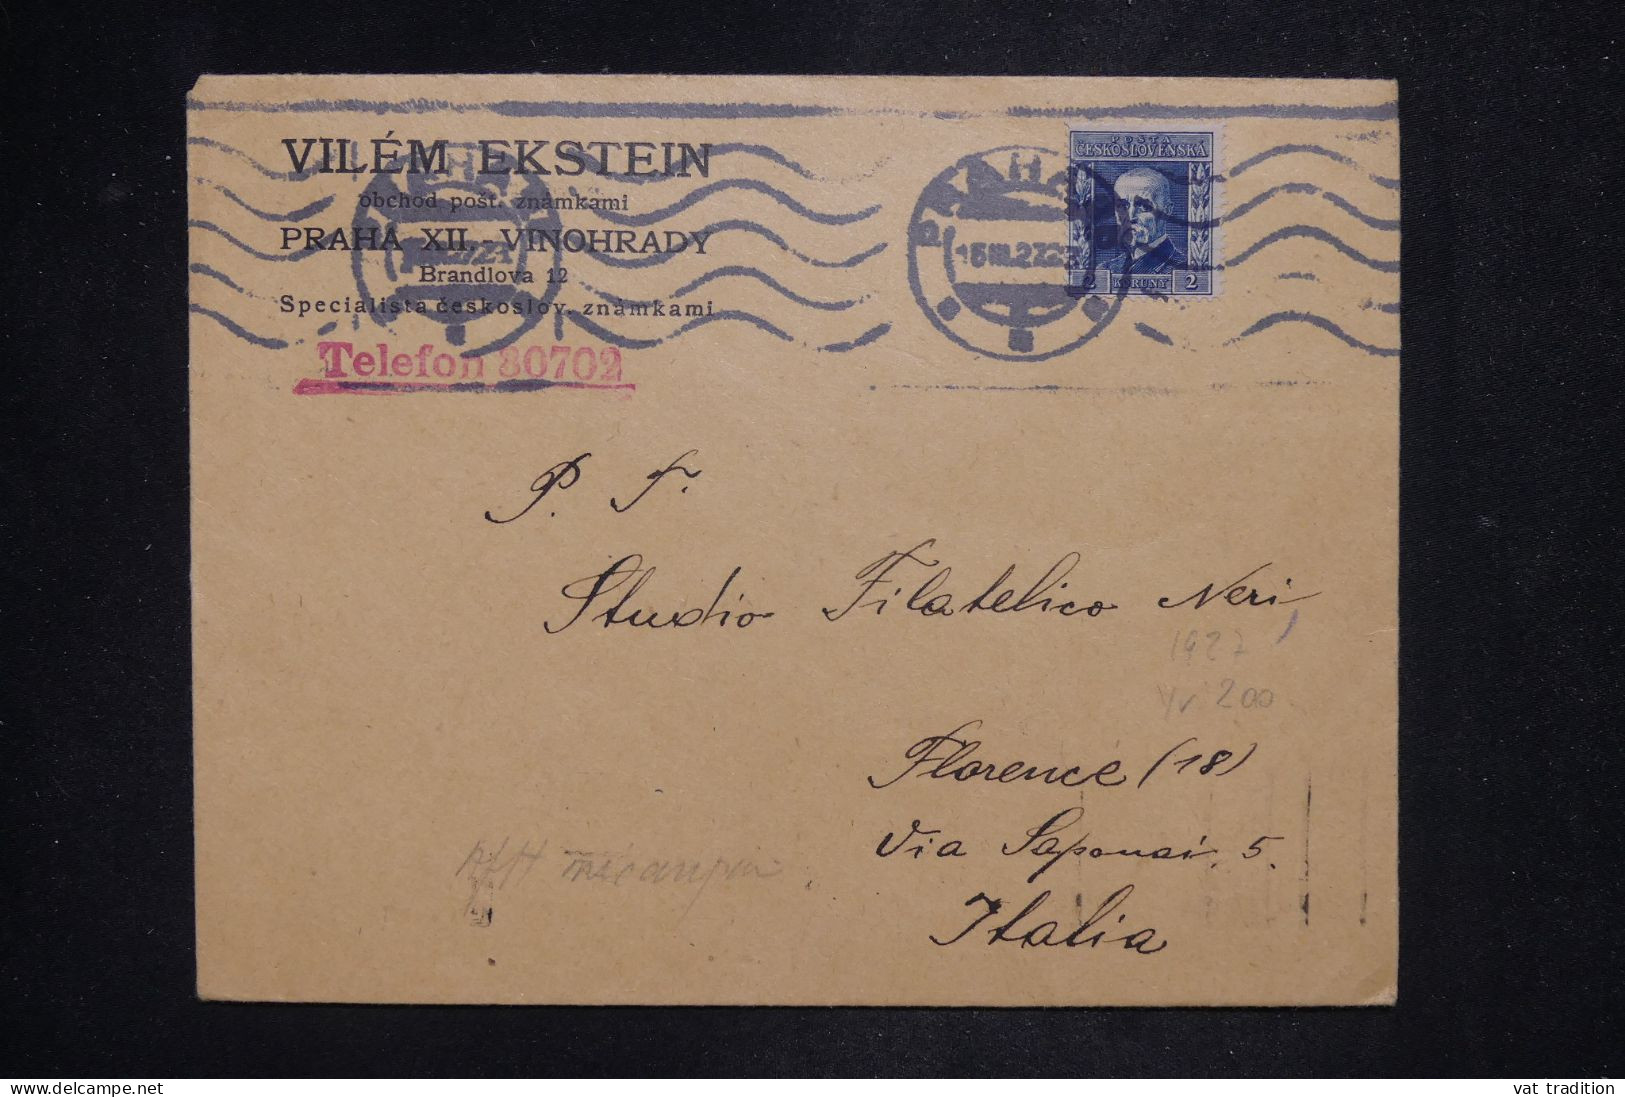 VILÉM EKSTEIN
obchod pošt. známkami
PRAHA XII, VINOHRADY
Brandlova 12
Specialista českoslov. známkami
Telefon 30702
PRAHA
15 III. 27.23
POŠTA
ČESKOSLOVENSKÁ
2 KORUNY 2
P. F.
Studio Filatelico Neri
1927
Yv 200
Florence (18)
Via Saponai. 5.
Italia
delcampe.net
vat tradition